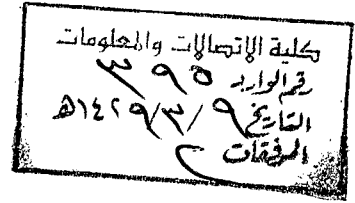 كلية الاتصالات والمعلومات
رقم الوارد ٣٩٥
التاريخ ٩/٣/١٤٢٩هـ
المرفقات ٢